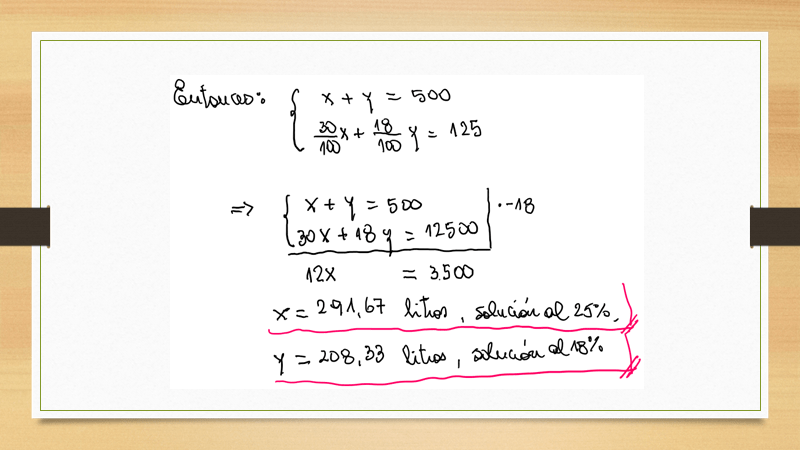 Entonces: { x + y = 500
30/100 x + 18/100 y = 125
=> { x + y = 500 | · -18
30x + 18y = 12500
12x = 3.500
x = 291,67 litros, solución al 25%.
y = 208,33 litros, solución al 18%